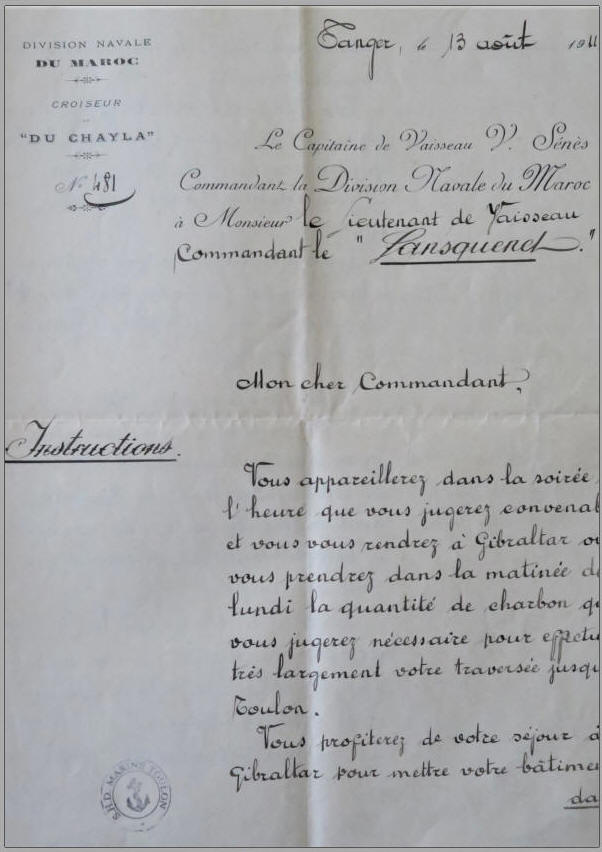 DIVISION NAVALE
DU MAROC
CROISEUR
"DU CHAYLA"
N° 481
Tanger, le 13 août 1911
Le Capitaine de Vaisseau V. Sénès
Commandant la Division Navale du Maroc
à Monsieur le Lieutenant de Vaisseau
Commandant le "Lansquenet."
Mon cher Commandant,
Instructions.
Vous appareillerez dans la soirée
l'heure que vous jugerez convenal
et vous vous rendrez à Gibraltar où
vous prendrez dans la matinée de
lundi la quantité de charbon qu
vous jugerez nécessaire pour effectu
très largement votre traversée jusqu
Toulon.
Vous profiterez de votre séjour à
Gibraltar pour mettre votre bâtime
da
S.H.D. MARINE TOULON